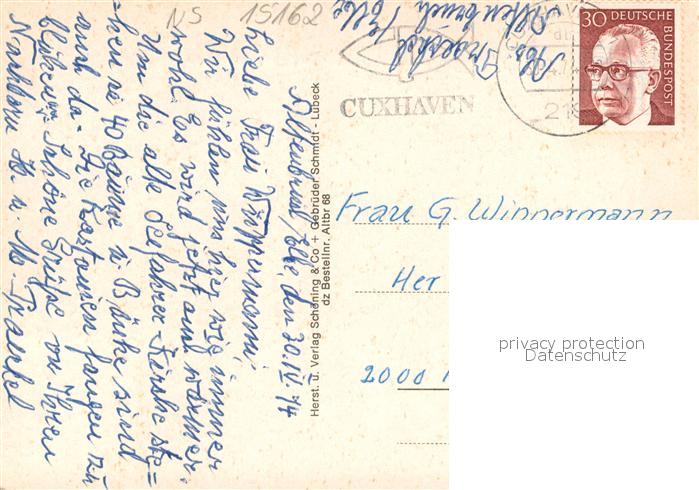 NS 15162
Abs. Traeckel
Altenbruch / Elbe
CUXHAVEN
30 DEUTSCHE
BUNDESPOST
Altenbruch/Elbe, den 30.IV.74
Liebe Frau Wippermann!
Wir fühlen uns hier wie immer
wohl. Es wird jetzt auch wärmer.
Um die alte Seefahrer-Kirche ste=
hen ca 40 Bäume u. Büsche sind
auch da. Die Kastanien fangen zu
blühen an. Schöne Grüße von Ihren
Nachbarn H. u. M. Traeckel
Herst. u. Verlag Schöning & Co + Gebrüder Schmidt - Lübeck
dz Bestellnr. Altbr 68
Frau G. Wippermann
Her
2000
privacy protection
Datenschutz